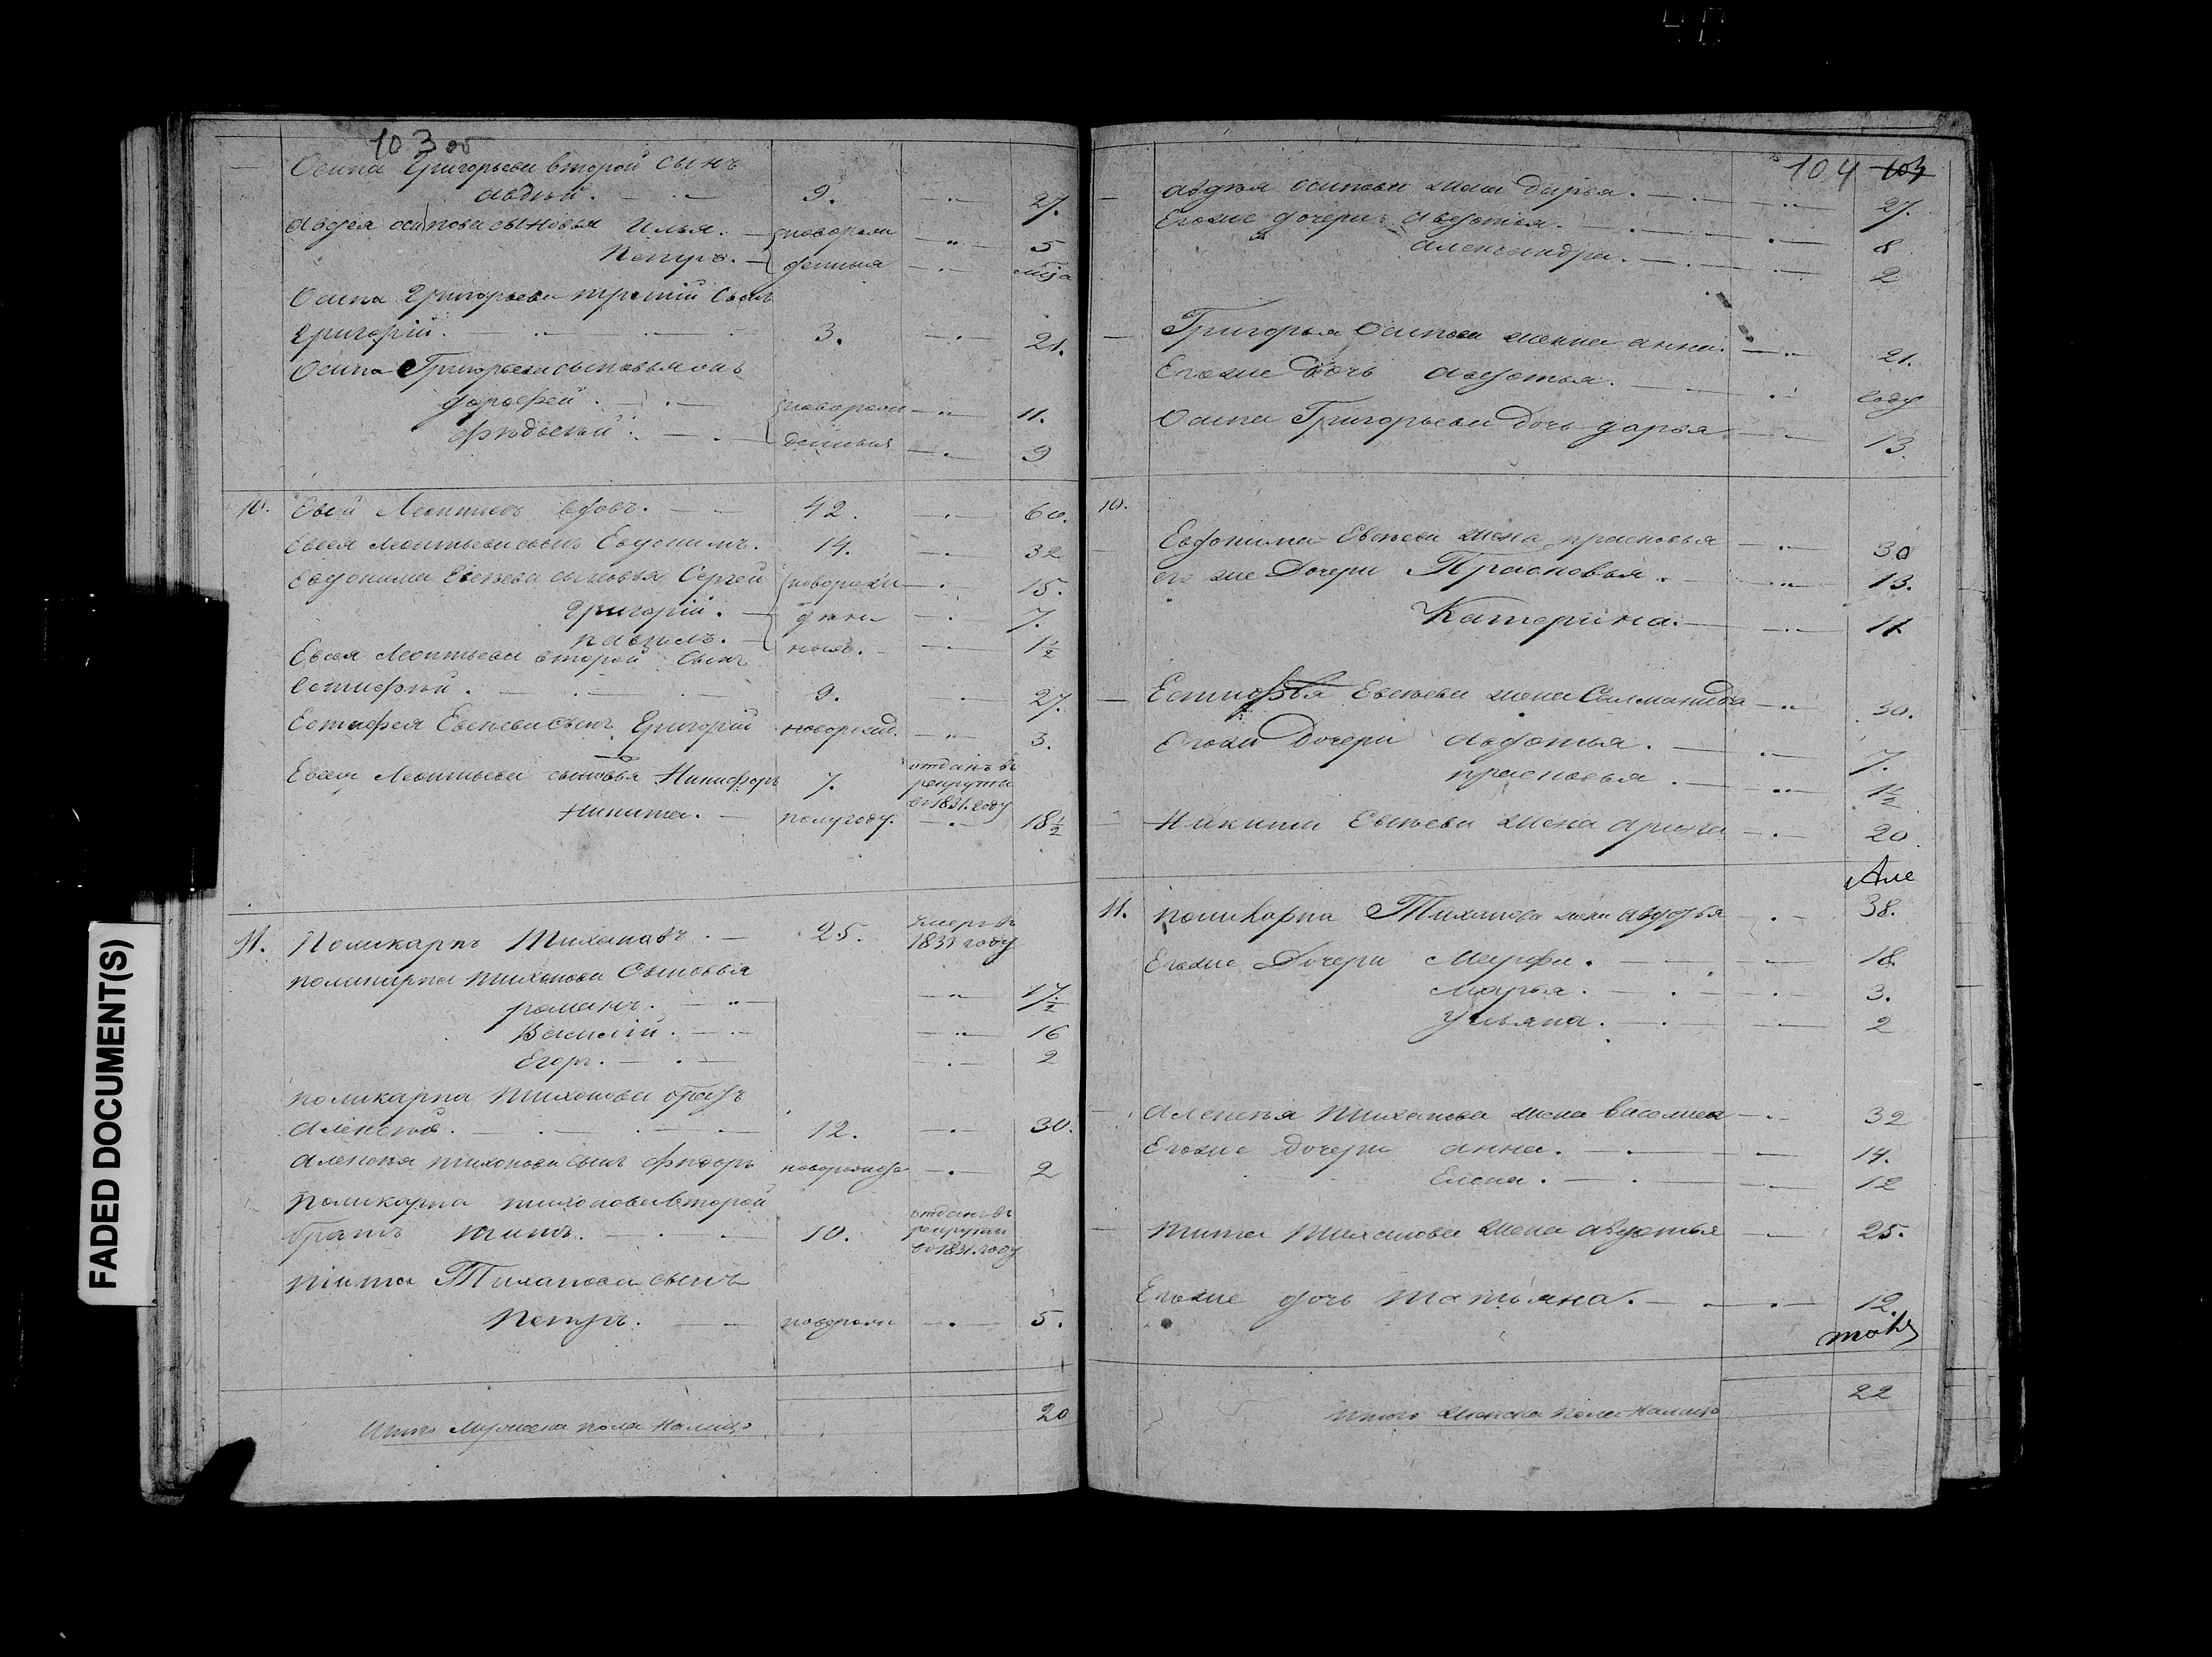 103 об
Осипа Григорьева второй сынъ
авдѣй. 9. 27.
Авдея осипова сыновья Илья. новорож 5
Петръ. денныя
Осипа Григорьева третий сынъ
григорій. 3. 21.
Осипа Григорьева сыновья
дорофей. новорож 11.
денныя 9
10. Евсей Леонтьевъ вдовъ. 42. 60.
Евсея Леонтьева сынъ Евдокимъ. 14. 32
Евдокима Евсеева сыновья Сергей новорож 15.
григорій. 7.
1½
Евсея Леонтьева второй сынъ
Естифей. 9. 27.
Естифея Евсеева сынъ Григорій новорожд. 3.
Евсея Леонтьева сыновья Никифоръ 7. отданъ въ рекруты в 1831. году
Никита. полугоду. 18½
11. Поликарпъ Тихановъ 25. умеръ въ 1831 году
поликарпа тихонова Сыновья
романъ. 17½
Василій. 16
Егоръ. 2
поликарпа тихонова братъ
Алексей. 12. 30.
Алексея тихонова сынъ фидоръ новорожде 2
поликарпа тихонова второй
братъ титъ. 10. отданъ въ рекруты в 1831. году
тита Тиханова сынъ
Петръ. новорож 5.
Итого Мужеска пола налицо 20
FADED DOCUMENT(S)
104
авдея осипова жена дарья. 27.
Егоже дочери авдотья. 8
александра. 2
Григорья Осипова жена анна. 21.
Егоже дочь авдотья. году
Осипа Григорьева дочь дарья 13
10.
Евдокима Евсеева жена прасковья 30
его же дочери Прасковья. 13.
Катерина. 11
Евсеева жена 30.
Егоже дочери авдотья. 7.
прасковья 1½
Никиты Евсеева жена арина 20
11. поликарпа Тиханова жена авдотья 38.
Егоже Дочери Марфа. 18.
Марья. 3.
Ульяна. 2
Алексея тиханова жена василиса 32
Егоже дочери анна. 14.
Елена. 12
тита тиханова жена авдотья 25.
Егоже дочь татьяна. 12.
Итого женска пола налицо 22